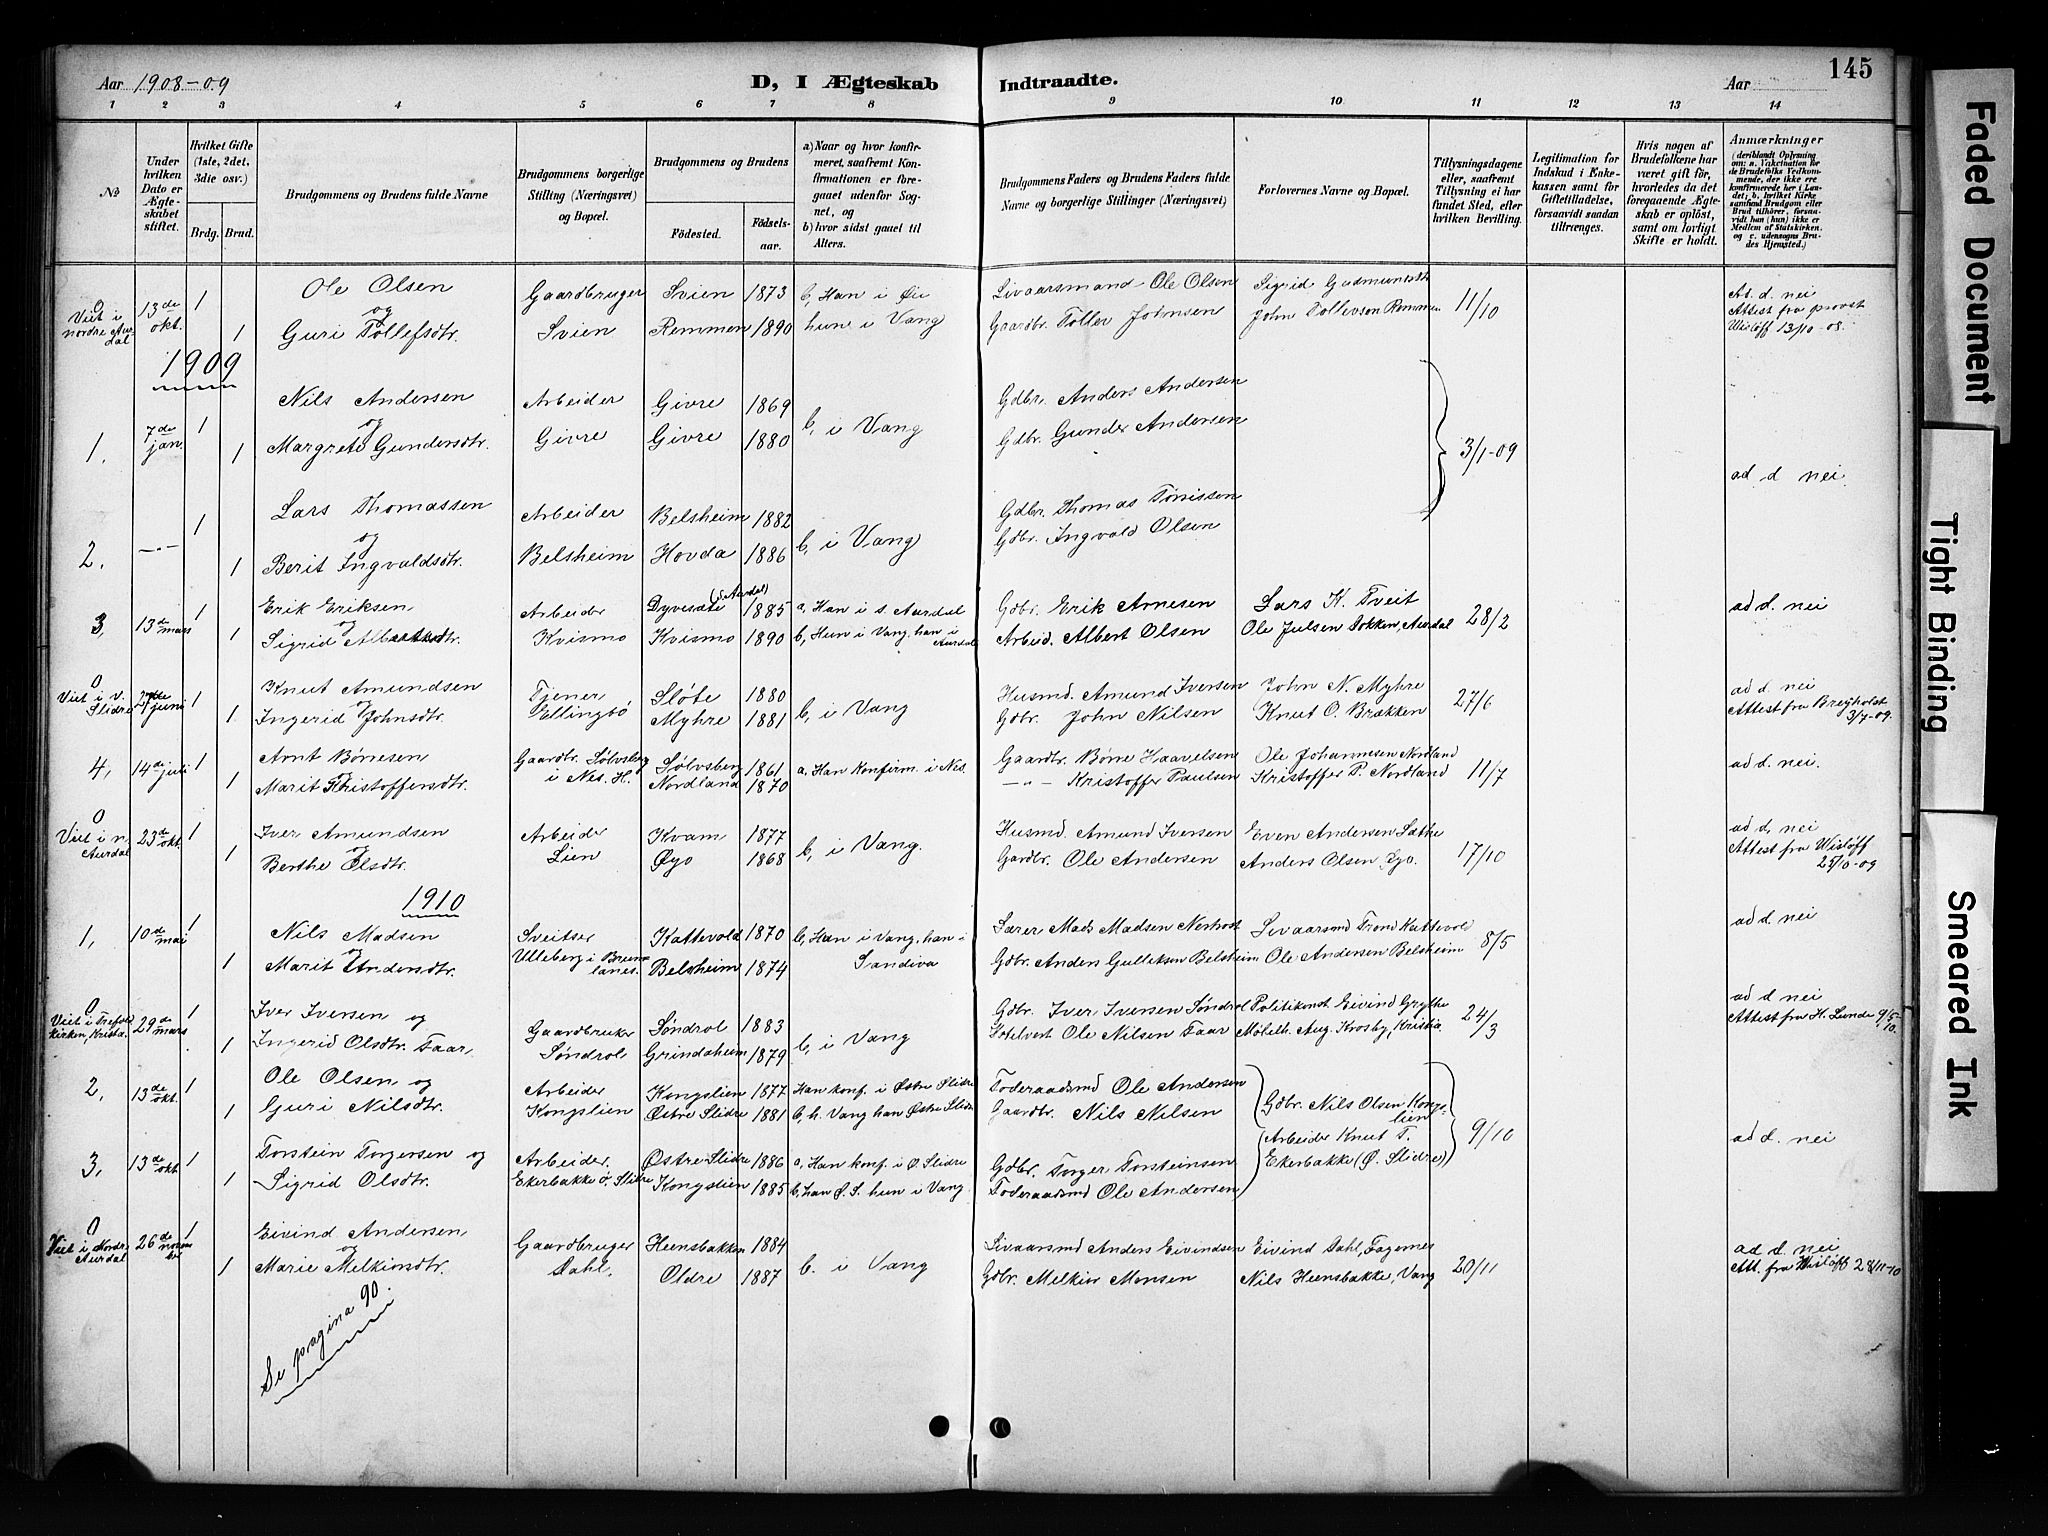 Aar 1908-09
D, I Ægteskab
Indtraadte.
Aar
145
1 2 3 4 5 6 7 8 9 10 11 12 13 14
No
Under hvilken Dato er Ægteskabet stiftet.
Hvilket Gifte (1ste, 2det, 3die osv.)
Brdg. Brud.
Brudgommens og Brudens fulde Navne
Brudgommens borgerlige Stilling (Næringsvei) og Bopæl.
Brudgommens og Brudens
Fødested.
Fødselsaar.
a) Naar og hvor konfirmeret, saafremt Konfirmationen er foregaaet udenfor Sognet, og
b) hvor sidst gaaet til Alters.
Brudgommens Faders og Brudens Faders fulde Navne og borgerlige Stillinger (Næringsvei)
Forlovernes Navne og Bopæl.
Tillysningsdagene eller, saafremt Tillysning ei har fundet Sted, efter hvilken Bevilling.
Legitimation for Indskud i Enkekassen samt for Giftetilladelse, forsaavidt saadan tiltrænges.
Hvis nogen af Brudefolkene har været gift før, hvorledes da det foregaaende Ægteskab er opløst, samt om lovligt Skifte er holdt.
Anmærkninger
(deriblandt Oplysning om: a. Vakcination for de Brudefolks Vedkommende, der ikke ere konfirmerede her i Landet; b. hvilket Kirkesamfund Brudgom eller Brud tilhører, forsaavidt han (hun) ikke er Medlem af Statskirken, og c. udensogns Brudes Hjemsted.)
0 Viet i nordre Aurdal 13de okt. 1 Ole Olsen Gaardbruger Svien 1873 b, Han i Øie Livaarsmand Ole Olsen Sigrid Gudmundsdtr 11/10 Ad. d. nei
og
1 Guri Tollefsdtr. Svien Remmen 1890 hun i Vang Gaardbr. Tollev Johnsen John Tollevson Remmen Attest fra provst Wisløff 13/10-08.
1909
1. 7de jan. 1 Nils Andersen Arbeider Givre 1869 b, i Vang Gdbr. Anders Andersen 3/1-09
og
1 Margrete Gundersdtr. Givre Givre 1880 Gdbr. Gunder Andersen ad d nei
2. -"- 1 Lars Thomassen Arbeider Belsheim 1882 b, i Vang Gdbr. Thomas Tønissen
og
1 Berit Ingvaldsdtr. Belsheim Hovda 1886 Gdbr. Ingvald Olsen
3, 13de mars 1 Erik Eriksen Arbeider Dyvesæte (i Aurdal) 1885 a, Han i s. Aurdal Gdbr. Erik Arnesen Lars K. Tveit 28/2 ad d. nei
og
1 Sigrid Albertsdtr. Kvismo Kvismo 1890 b, Hun i Vang, han i Aurdal Arbeid. Albert Olsen Ole Julsen Sokken, Aurdal
0 Viet i V. Slidre juni 1 Knut Amundsen Tjener Sløte 1880 b, i Vang Husmd. Amund Iversen John N. Myhre 27/6 ad d. nei
og
1 Ingerid Johnsdtr. Ellingbø Myhre 1881 Gdbr. John Nilsen Knut O. Brækken Attest fra Bregholst 3/7-09.
4, 14de juli 1 Arnt Børresen Gaardbr. Sølvsberg i Nes. H. Sølvsberg 1861 a, Han konfirm. i Nes. Gaardbr. Børre Haavelsen Ole Johannesen Nordland 11/7 ad d. nei.
og
1 Marit Kristoffersdtr. Nordland 1870 -"- Kristoffer Paulsen Kristoffer P. Nordland
0 Viet i n. Aurdal 23de okt. 1 Iver Amundsen Arbeider Kvam 1877 b, i Vang. Husmd. Amund Iversen Even Andersen Sæthe 17/10 ad d, nei
og
1 Berthe Olsdtr. Lien Øyo 1868 Gardbr. Ole Andersen Anders Olsen Øyo. Attest fra Wisløff 25/10-09
1910
1, 10de mai 1 Nils Madsen Sveitser Kattevold 1870 b, Hun i Vang, han i Sandiva Lærer Mads Madsen Nerhost Livaarsmd Trond Kattevold 8/5 ad d. nei
og
1 Marit Andersdtr. Ulleberg i Brunlanes. Belsheim 1874 Gdbr. Anders Gulleiksen Belsheim Ole Andersen Belsheim
0 Viet i Trefold. kirken, Kristia. 29de mars 1 Iver Iversen og Gaardbruker Søndrol 1883 b, i Vang Gdbr. Iver Iversen Søndrol Politikonst. Eivind Grythe 24/3 ad d. nei
1 Ingerid Olsdtr. Faar, Søndrol Grindaheim 1879 Hotelvert Ole Nilsen Faar Møbelh. Aug. Krosby, Kristia. Attest fra H. Lunde 9/5-10.
2, 13de okt. 1 Ole Olsen og Arbeider Kongslien 1877 Han konf. i Østre Slidre Føderaadsmd Ole Andersen Gdbr. Nils Olsen Kongslien 9/10
1 Guri Nilsdtr. Kongslien Østre Slidre 1881 b, h. Vang han Østre Slidre Gaardbr. Nils Nilsen
3, 13de okt. 1 Torstein Torgersen og Arbeider. Østre Slidre 1886 a, Han konf. i Ø. Slidre Gdbr. Torger Torsteinsen Arbeider Knut T. Ekerbakke (Ø. Slidre) ad d. nei
1 Sigrid Olsdtr. Ekerbakke Ø. Slidre Kongslien 1885 b, han Ø. S. hun i Vang. Føderaadsmd Ole Andersen
0 Viet i Nordre Aurdal 26de novem ber 1 Eivind Andersen Gaardbruger Heensbakken 1884 b. i Vang Livaarsmd Anders Eivindsen Eivind Dahl, Fagernes 20/11 ad d. nei
og
1 Marie Melkiorsdtr. Dahl, Oldre 1887 Gdbr. Melkior Monsen Nils Heensbakke, Vang Att. fra Wisløff 28/11-10
Se pagina 90.
Faded Document
Tight Binding
Smeared Ink